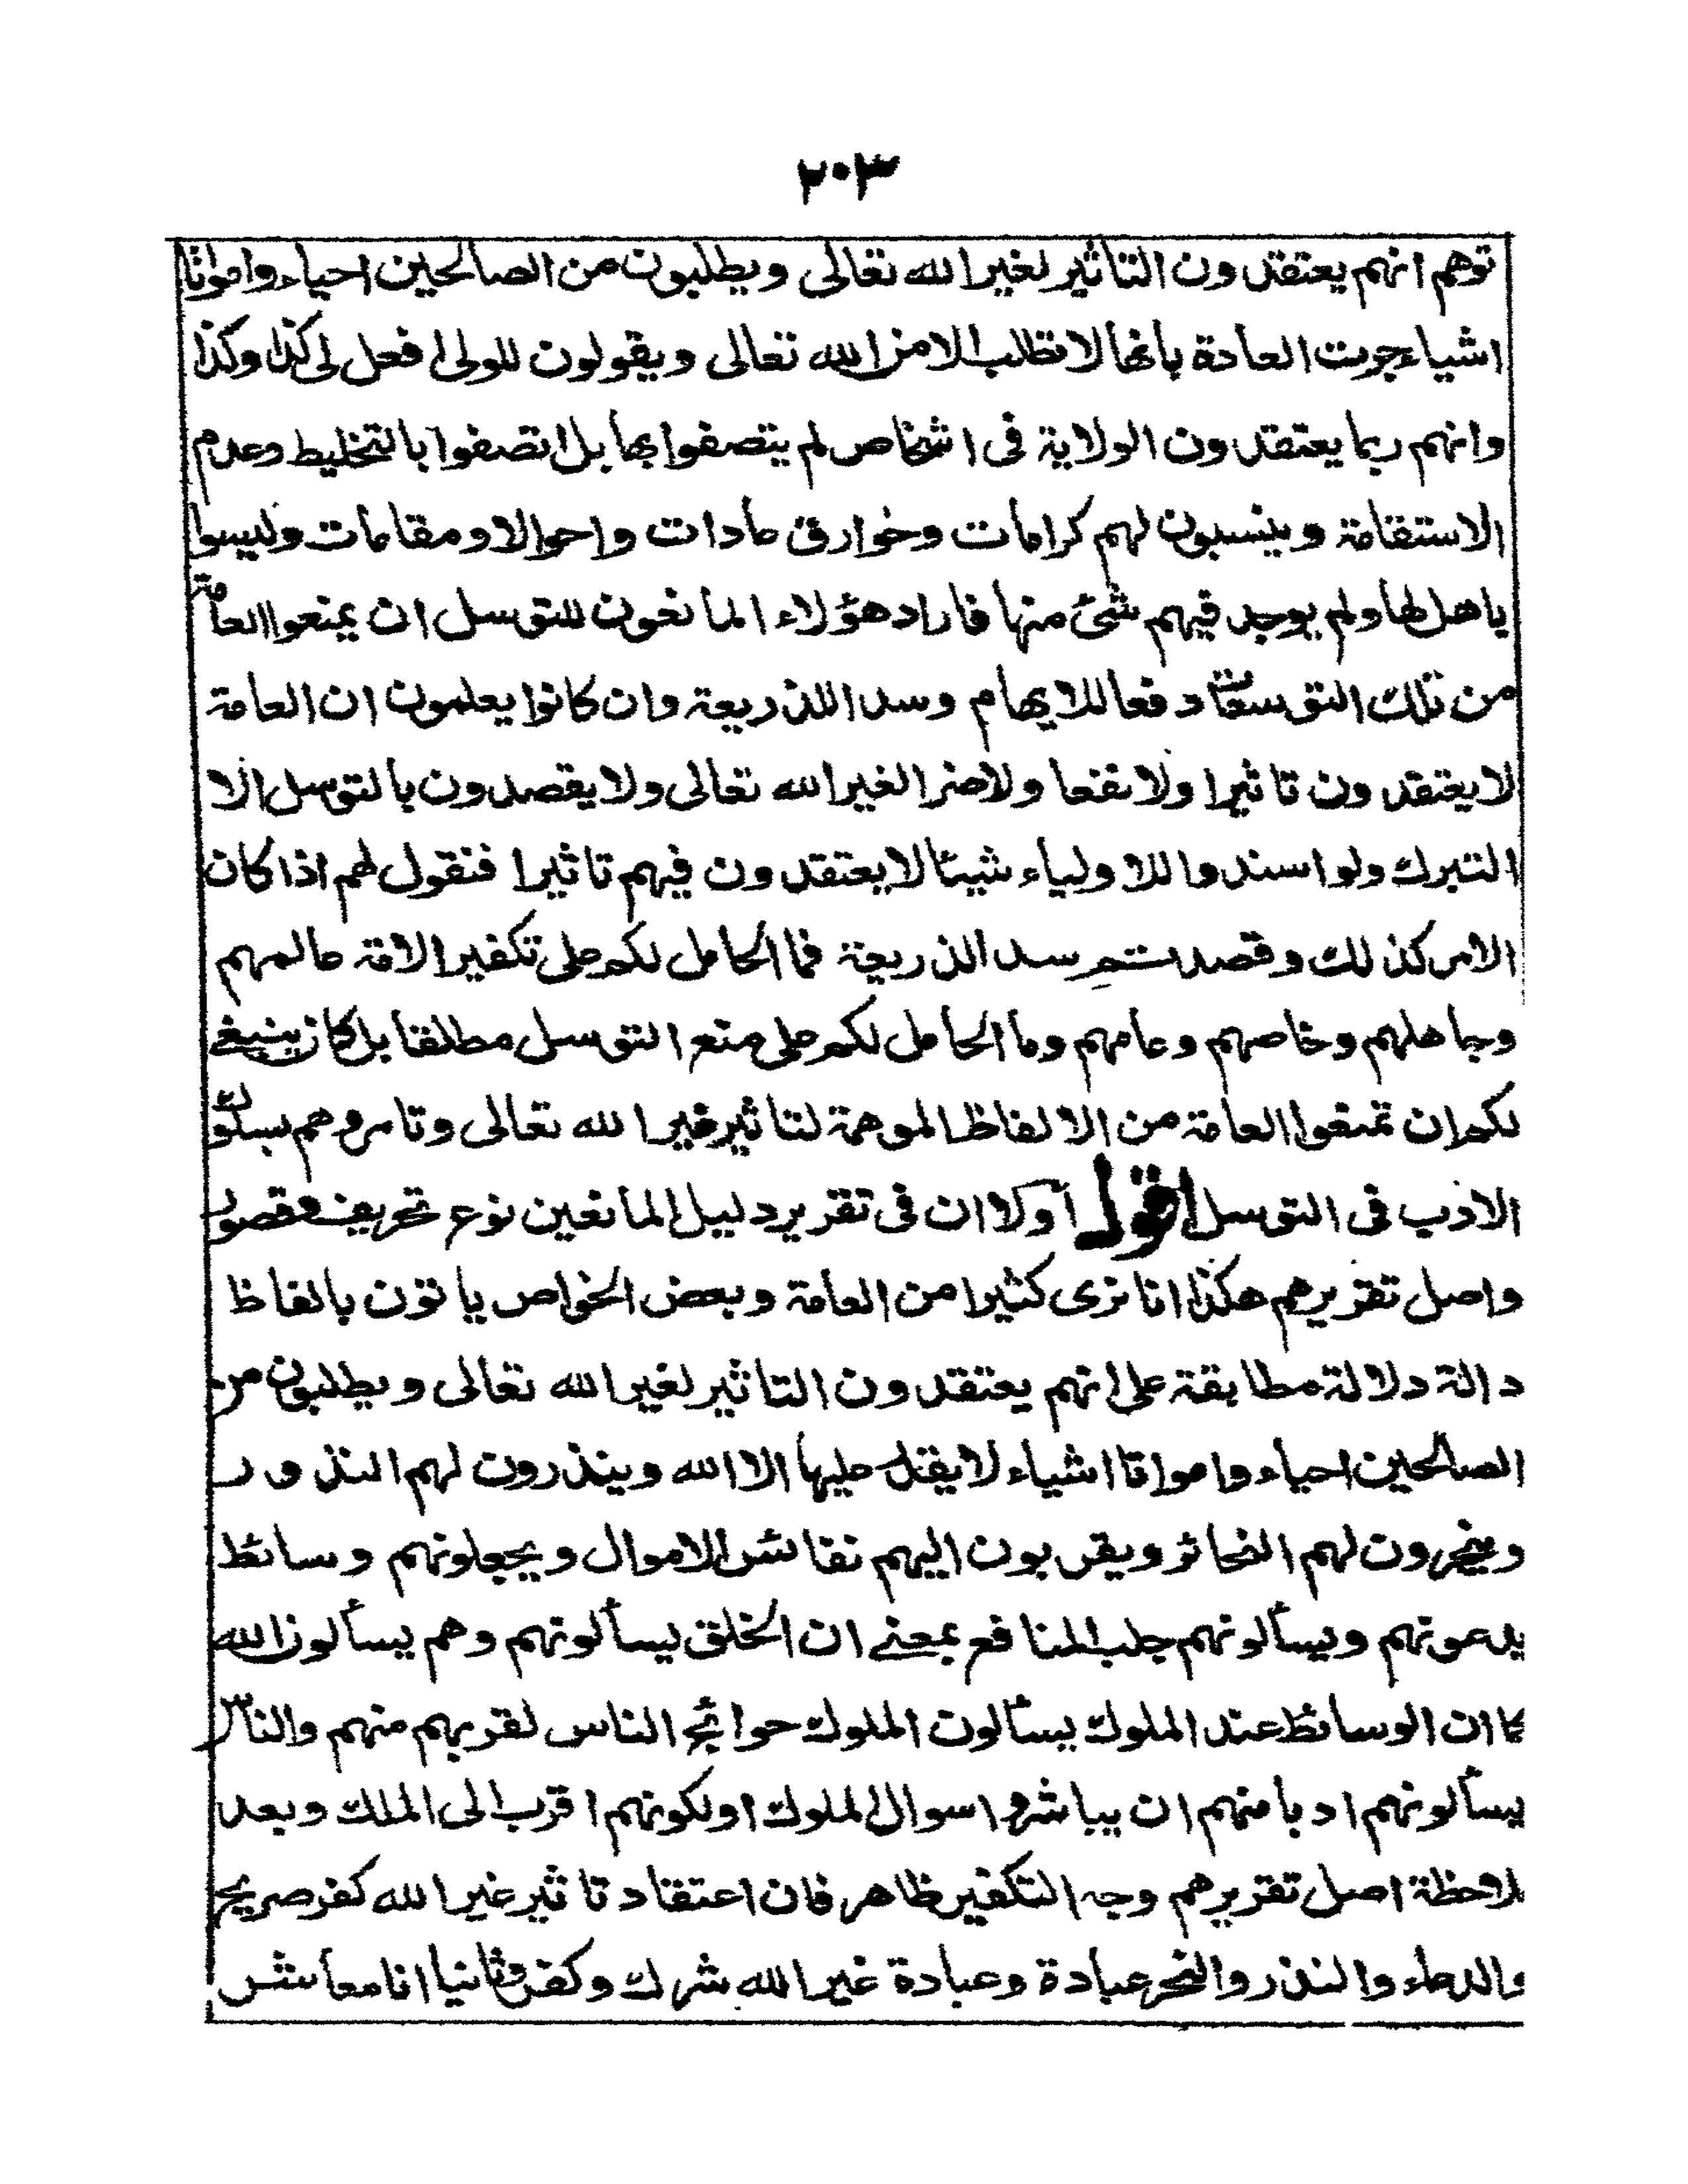 ٢٠٣
توهم انهم يعتقدون التاثير لغير الله تعالى ويطلبون من الصالحين احياء وامواتا
اشياء جرت العادة بأنها لا تطلب الا من الله تعالى ويقولون للولى افعل لى كذا وكذا
وانهم ربما يعتقدون الولاية فى اشخاص لم يتصفوا بها بل اتصفوا بالتخليط وعدم
الاستقامة وينسبون لهم كرامات وخوارق عادات واحوالا ومقامات وليسوا
باهل لها ولم يوجد فيهم شئ منها فاراد هؤلاء المانعون للتوسل ان يمنعوا العامة
من تلك التوسعات دفعا للايهام وسدا للذريعة وان كانوا يعلمون ان العامة
لا يعتقدون تاثيرا ولا نفعا ولا ضرا لغير الله تعالى ولا يقصدون بالتوسل الا
التبرك ولو اسندوا للاولياء شيئا لا يعتقدون فيهم تاثيرا فنقول لهم اذا كان
الامر كذلك وقصدتم سد الذريعة فما الحامل لكم على تكفير الامة عالمهم
وجاهلهم وخاصهم وعامهم وما الحامل لكم على منع التوسل مطلقا بل كان ينبغى
لكم ان تمنعوا العامة من الالفاظ الموهمة لتاثير غير الله تعالى وتامروهم بسلوك
الادب فى التوسل اقول اولا ان فى تقرير دليل المانعين نوع تحريف وقصور
واصل تقريرهم هكذا انا نرى كثيرا من العامة وبعض الخواص ياتون بالفاظ
دالة دلالة مطابقة على انهم يعتقدون التاثير لغير الله تعالى ويطلبون من
الصالحين احياء وامواتا اشياء لا يقدر عليها الا الله وينذرون لهم النذور
وينحرون لهم النحائر ويقربون اليهم نفائس الاموال ويجعلونهم وسائط
يدعونهم ويسألونهم جلب المنافع بمعنى ان الخلق يسألونهم وهم يسألون الله
كما ان الوسائط عند الملوك يسألون الملوك حوائج الناس لقربهم منهم والناس
يسألونهم ادبا منهم ان يباشروا سوال الملوك او لكونهم اقرب الى الملك وبعد
ملاحظة اصل تقريرهم وجه التكفير ظاهر فان اعتقاد تاثير غير الله كفر صريح
والدعاء والنذر والنحر عبادة وعبادة غير الله شرك وكفر وثانيا انا معاشر